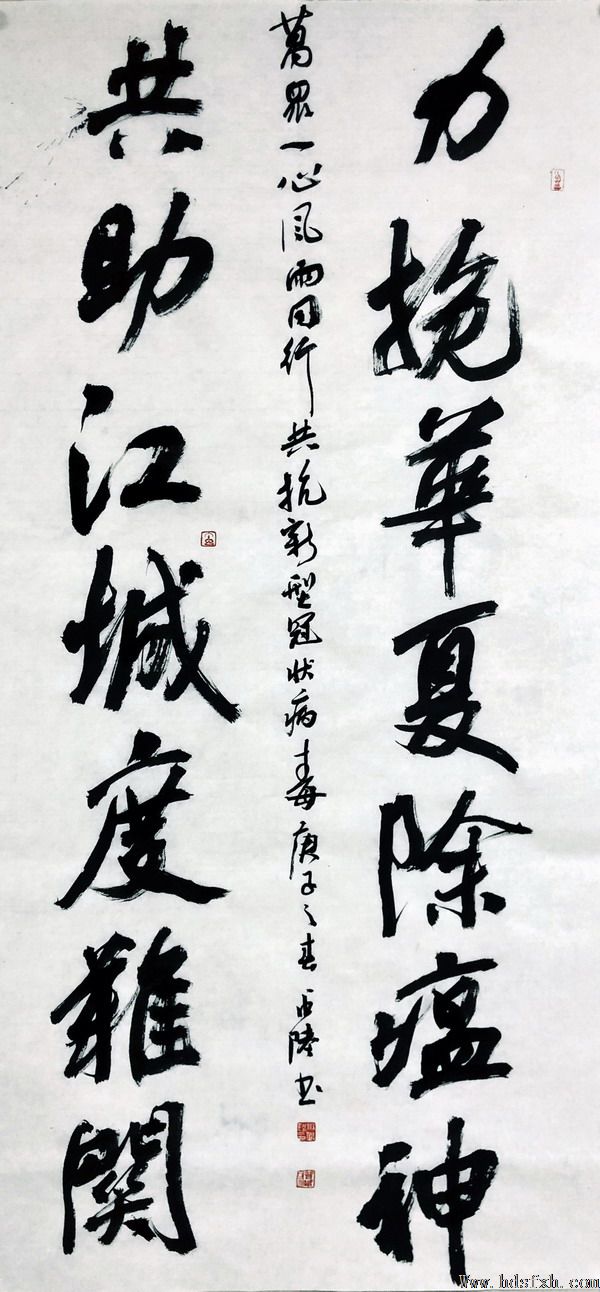 力挽華夏除瘟神
萬眾一心風雨同行共抗新型冠狀病毒庚子之春
陸書
共助江城度難關
Www.hdsfxh.com